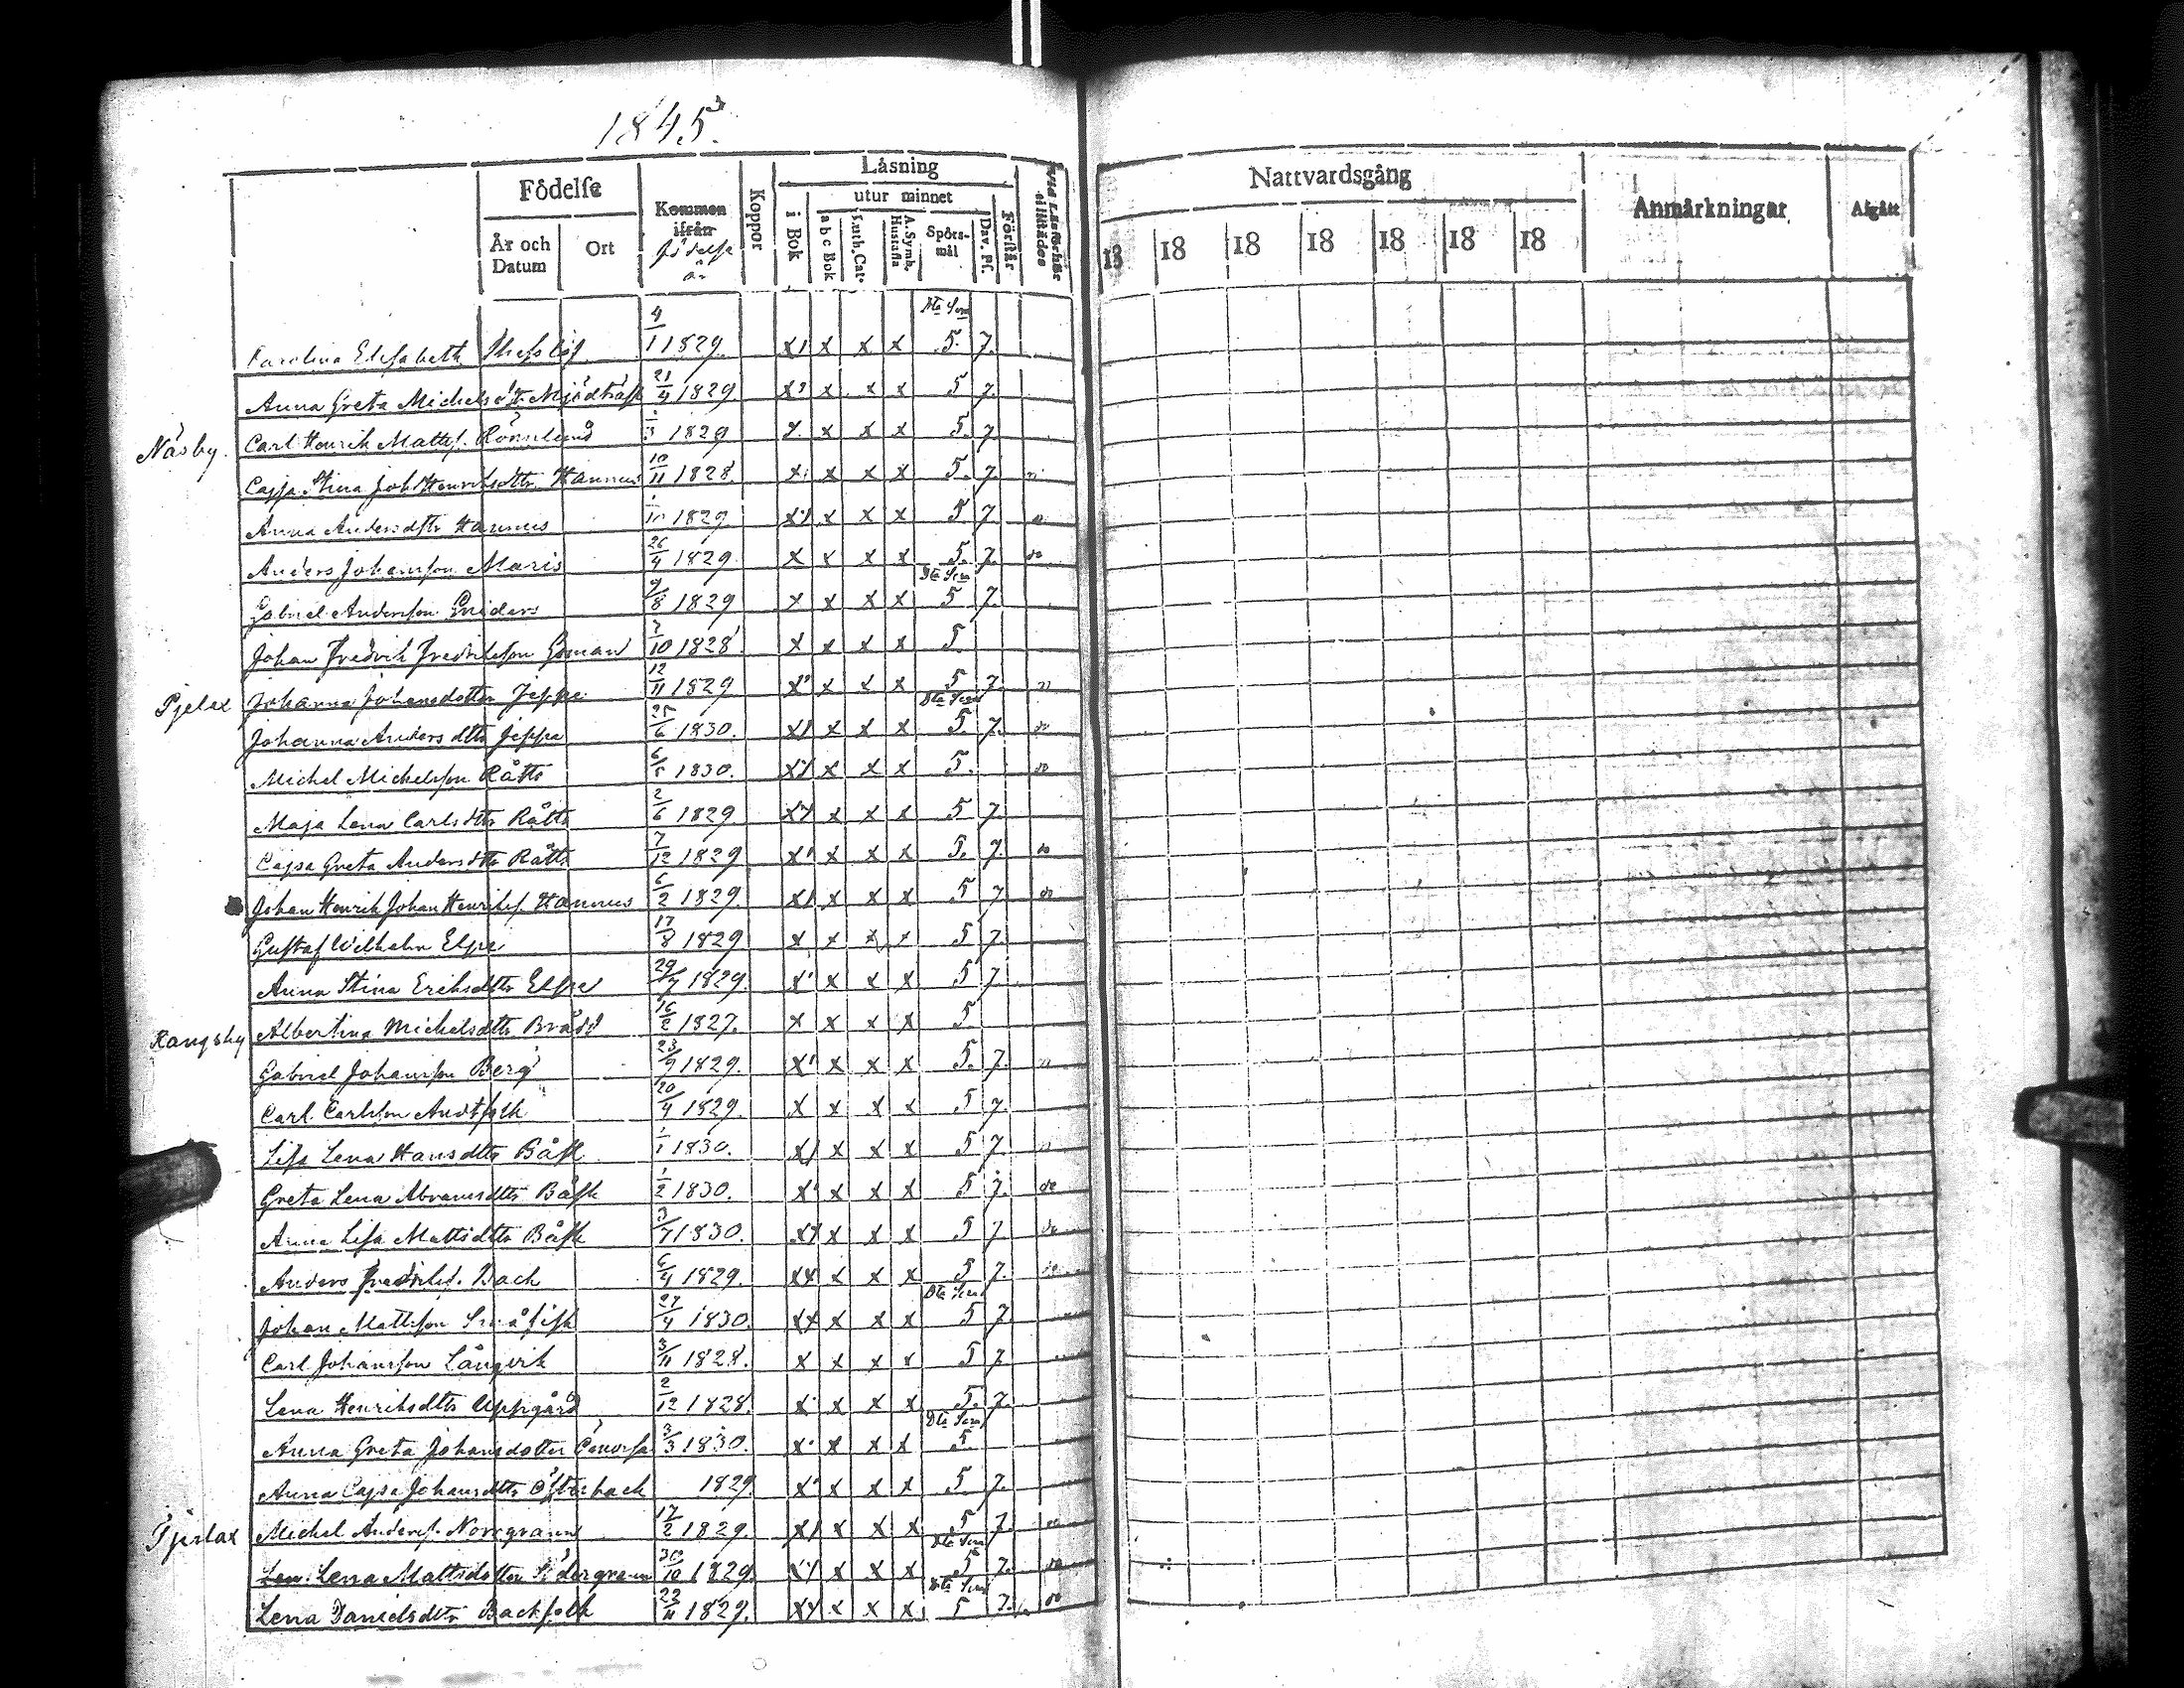 1845.
Födelse
År och Datum
Ort
Kommen ifrån
födelse år
Koppor
Läsning
i Bok
utur minnet
a b c Bok
Luth. Cat.
A. Symb. Hustafla
Spörsmål
Dav. Ps.
Förstår
Vid Läsförhör tillstädes
Nattvardsgång
18 18 18 18 18 18 18
Anmärkningar
Afgått
Carolina Elisabeth 1829. x x x x 5. 7.
Anna Greta Michelsdtr Mjödträsk 21/4 1829 x x x x 5 7.
Näsby. Carl Henrik Mattss. Rönnlund 1829 x x x 5. 7
Cajsa Stina Joh Henriksdttr Hannus 10/11 1828. x x x x 5. 7.
Anna Andersdttr Hannus 1829. x x x 5 7.
Anders Johansson Maris 26/4 1829. x x x x 5. 7. do
Gabriel Andersson 9/8 1829 x x x x 5 7.
Johan Fredrik Fredriksson 7/10 1828 x x x x 5.
Pjelax Johanna Johansdotter Jeppe 12/11 1829 x x x 5 7.
Johanna Andersdttr Jeppe 25/6 1830. x x x x 5. 7. do
Michel Michelsson Rätts 1830. x x x 5. do
Maja Lena Carlsdttr Rätts 2/6 1829. x x x 5 7.
Cajsa Greta Andersdttr Rätts 7/12 1829 x x x x 5. 7. do
Johan Henrik Johan Henrikss. Hannus 6/2 1829. x x x x 5 7 do
Gustaf Wilhelm Elpe 17/8 1829 x x x x 5 7.
Anna Stina Eriksdttr Elpe 29/7 1829. x x x x 5 7.
Rangsby Albertina Michelsdttr Brädd 16/2 1827. x x x x 5.
Gabriel Johansson Berg 23/9 1829. x x x x 5. 7.
Carl Carlsson Andtfolk 20/4 1829. x x x x 5 7.
Lisa Lena Hansdttr Båsk 1830. x x x x 5 7.
Greta Lena Abramsdttr Båsk 1/2 1830. x x x x 5 7. do
Anna Lisa Mattsdttr Båsk 1830. x x x 5 7 do
Anders Fredrikss. Back 6/4 1829. x x x 5 7. do
Johan Mattsson Småfisk 27/4 1830. x x x 5 7.
Carl Johansson Långvik 3/11 1828. x x x x 5 7
Lena Henriksdttr Uppgård 2/12 1828. x x x x 5. 7.
Anna Greta Johansdotter 3/3 1830. x x x x 5.
Anna Cajsa Johansdttr Österback 1829 x x x x 5. 7.
Pjelax Michel Anderss. Norrgrann 17/2 1829. x x x x 5 7. do
Lena Mattsdotter Södergrann 30/10 1829. x x x 5 7. do
Lena Danielsdttr Backfolk 23/11 1829. x x x 5 7. do